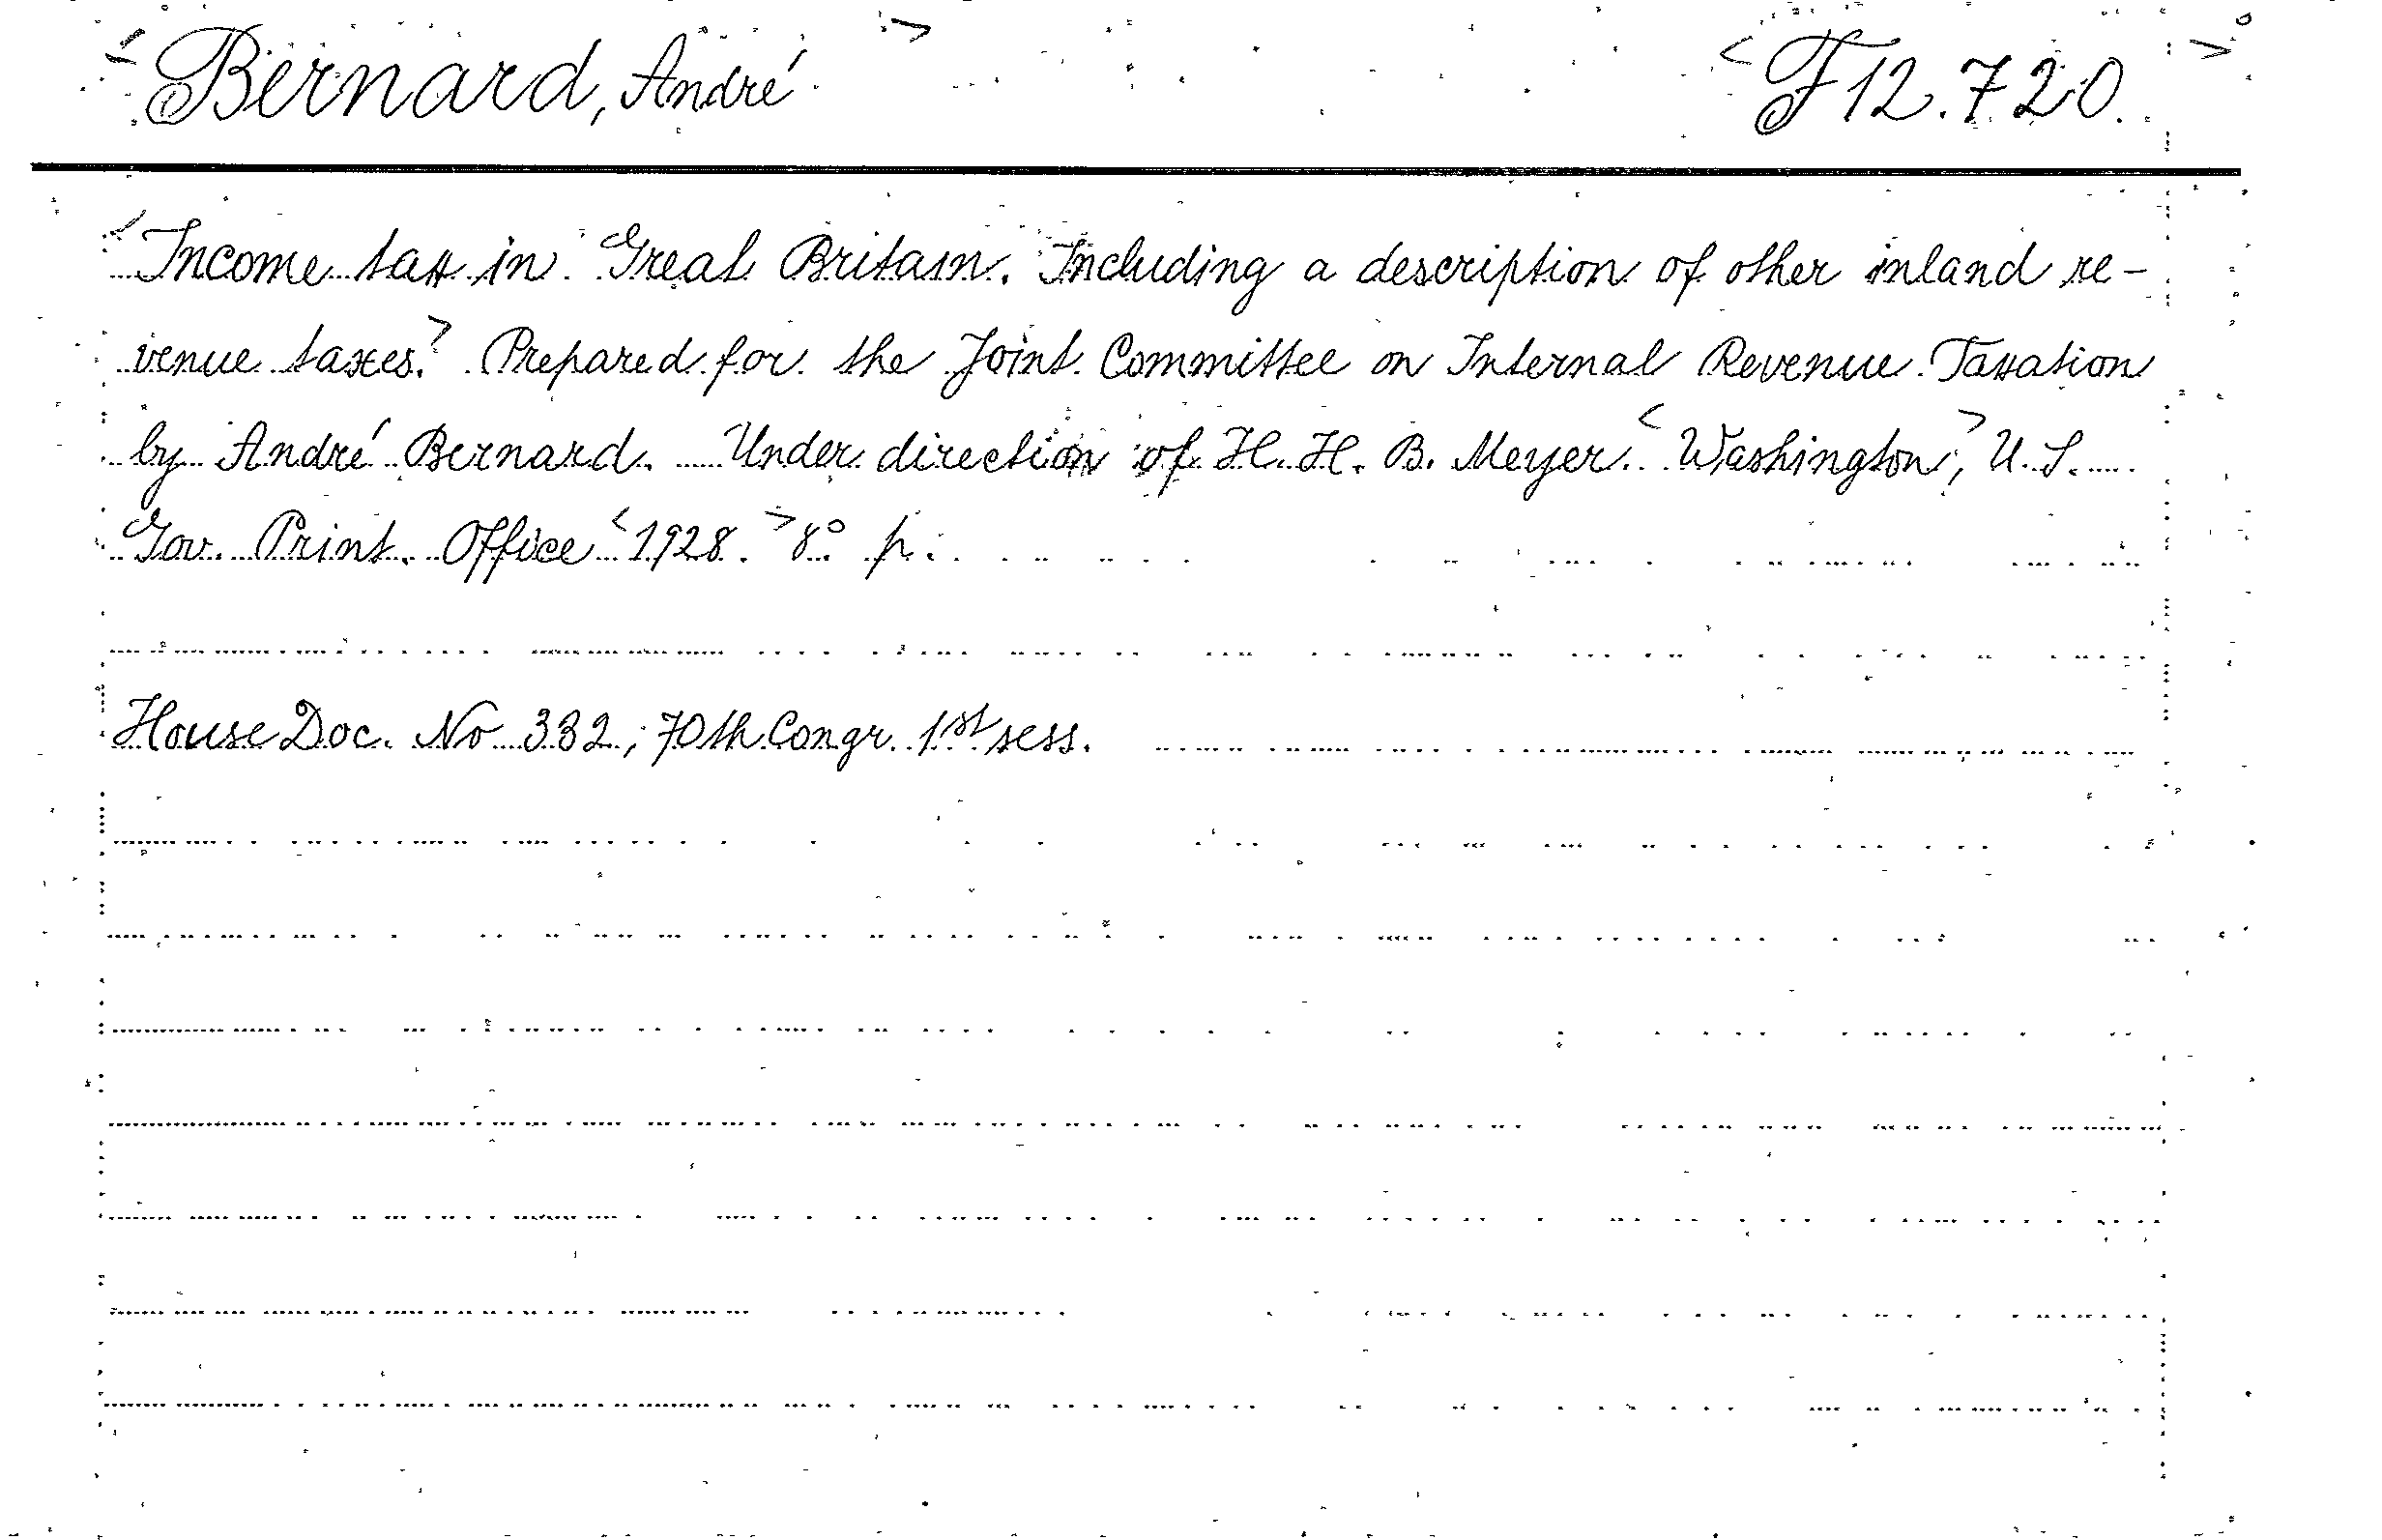 <Bernard, André> <F12.720.>
<Income tax in Great Britain. Including a description of other inland re-
venue taxes.> Prepared for the Joint Committee on Internal Revenue Taxation
by André Bernard. Under direction of H. H. B. Meyer. <Washington,> U. S.
Gov. Print. Office <1928.> 8° p.
House Doc. No 332, 70th Congr. 1st sess.